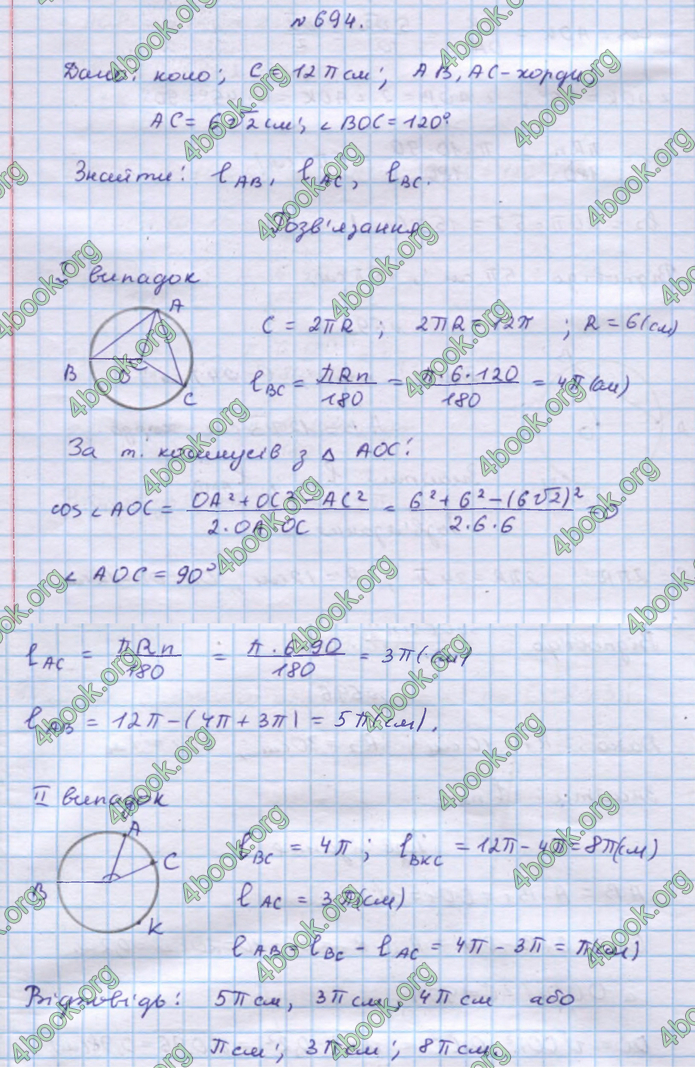 № 694.
Дано: коло; C = 12π см; AB, AC - хорди
AC = 6√2 см; ∠BOC = 120°
Знайти: l AB, l AC, l BC.
Розв'язання
I випадок
A
B
O
C
C = 2πR ; 2πR = 12π ; R = 6 (см)
l BC = πRn/180 = π·6·120/180 = 4π (см)
За т. косинусів з △ AOC:
cos ∠AOC = OA² + OC² - AC²/2·OA·OC = 6² + 6² - (6√2)²/2·6·6 = 0
∠ AOC = 90°
l AC = πRn/180 = π·6·90/180 = 3π (см)
l AB = 12π - (4π + 3π) = 5π (см).
II випадок
A
C
B
K
l BC = 4π ; l BKC = 12π - 4π = 8π (см)
l AC = 3π (см)
l AB = l BC - l AC = 4π - 3π = π (см)
Відповідь: 5π см, 3π см, 4π см або
π см; 3π см; 8π см.
4book.org